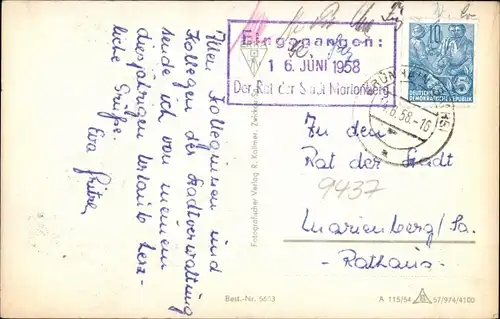 Allen Kolleginnen und
Kollegen der Stadtverwaltung
sende ich von meinem
diesjährigen Urlaub herz-
liche Grüße.
Eva
Fotografischer Verlag R. Kallmer, Zwickau
Best.-Nr. 5633
Eingegangen:
1 6. JUNI 1958
Der Rat der Stadt Marienberg
10
5
DEUTSCHE
DEMOKRATISCHE REPUBLIK
.6.58.-16
An den
Rat der Stadt
9437
Marienberg/Sa.
- Rathaus -
A 115/54 57/974/4100